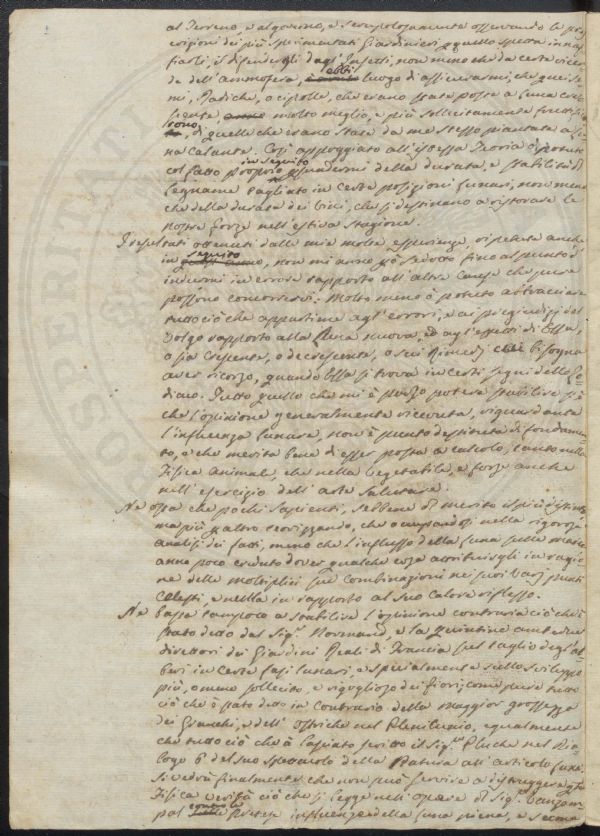 al Terreno, e al governo, e scrupolosamente osservando le pre
scrizioni dei più sperimentati Giardinieri per quello spetta innaf
fiarli, il difenderli dagl'Insetti, non meno che da certe vicen
de dell'atmosfera, ebbi luogo di assicurarmi, che quei se
mi, Radiche, o cipolle, che erano state poste a luna cres
cente, molto meglio, e più sollecitamente fruttifica
rono, di quelle che erano state da me stesso piantate a Lu
na Calante. Così appoggiato all'istessa Teoria ò potuto
col fatto proprio in seguito della durata, e stabilità di
legname tagliato in certe posizioni lunari, non meno
che della durata dei vini, che si destinano a ristorare le
nostre forze nell'estiva stagione.
I resultati ottenuti dalle mie molte esperienze, ripetute anche
in seguito, non mi anno già sedotto fino al punto d'
indurmi in errore rapporto all'altre cause che pure
possono concorrervi: Molto meno ò potuto abbracciare
tutto ciò che appartiene agl'errori, e ai pregiudizj del
Volgo rapporto alla Luna nuova, ed agl'effetti di Essa,
o sia crescente, o decrescente, o sui Rimedj che bisogna
aver ricorso, quando Essa si trova in certi segni dello Zo
diaco. Tutto quello che mi è parso potere stabilire si è
che l'opinione generalmente ricevuta, riguardante
l'influenza lunare, non è punto destituta di fondamen
to, e che merita bene di esser posta a calcolo, tanto nella
Fisica animale, che nella Vegetabile, e forse anche
nell'esercizio dell'arte salutare.
Ne osta che pochi Sapienti, sebbene di merito il più distinto
ma più per altro teorizzando, che occupandosi nella rigorosa
analisi dei fatti, meno che l'influsso della Luna sulle maree
anno poco creduto dover qualche cosa attribuirgli in ragio
ne delle moltiplici sue combinazioni nei suoi varj punti
Celesti, e nulla in rapporto al suo calore riflesso.
Ne basta tampoco a stabilire l'opinione contraria ciò che è
stato detto dal Sigr. Normand, e la Quintine ambedue
direttori dei Giardini Reali di Francia sul taglio degl'al
beri in certe fasi lunari, e specialmente sullo sviluppo
più, o meno sollecito, e rigoglioso dei fiori; come pure tutto
ciò che è stato detto in contrario della maggior grossezza
dei Granchi, e dell'Ostriche nel Plenilunio, egualmente
che tutto ciò che à lasciato scritto il Sigr. Pluche nel Dia
logo 6 del suo spettacolo della Natura all'articolo Luna.
Si vedrà finalmente che non può servire a distruggere
Fisica verità ciò che si legge nell'opere di Sigr.
influenza della luna piena, e scema